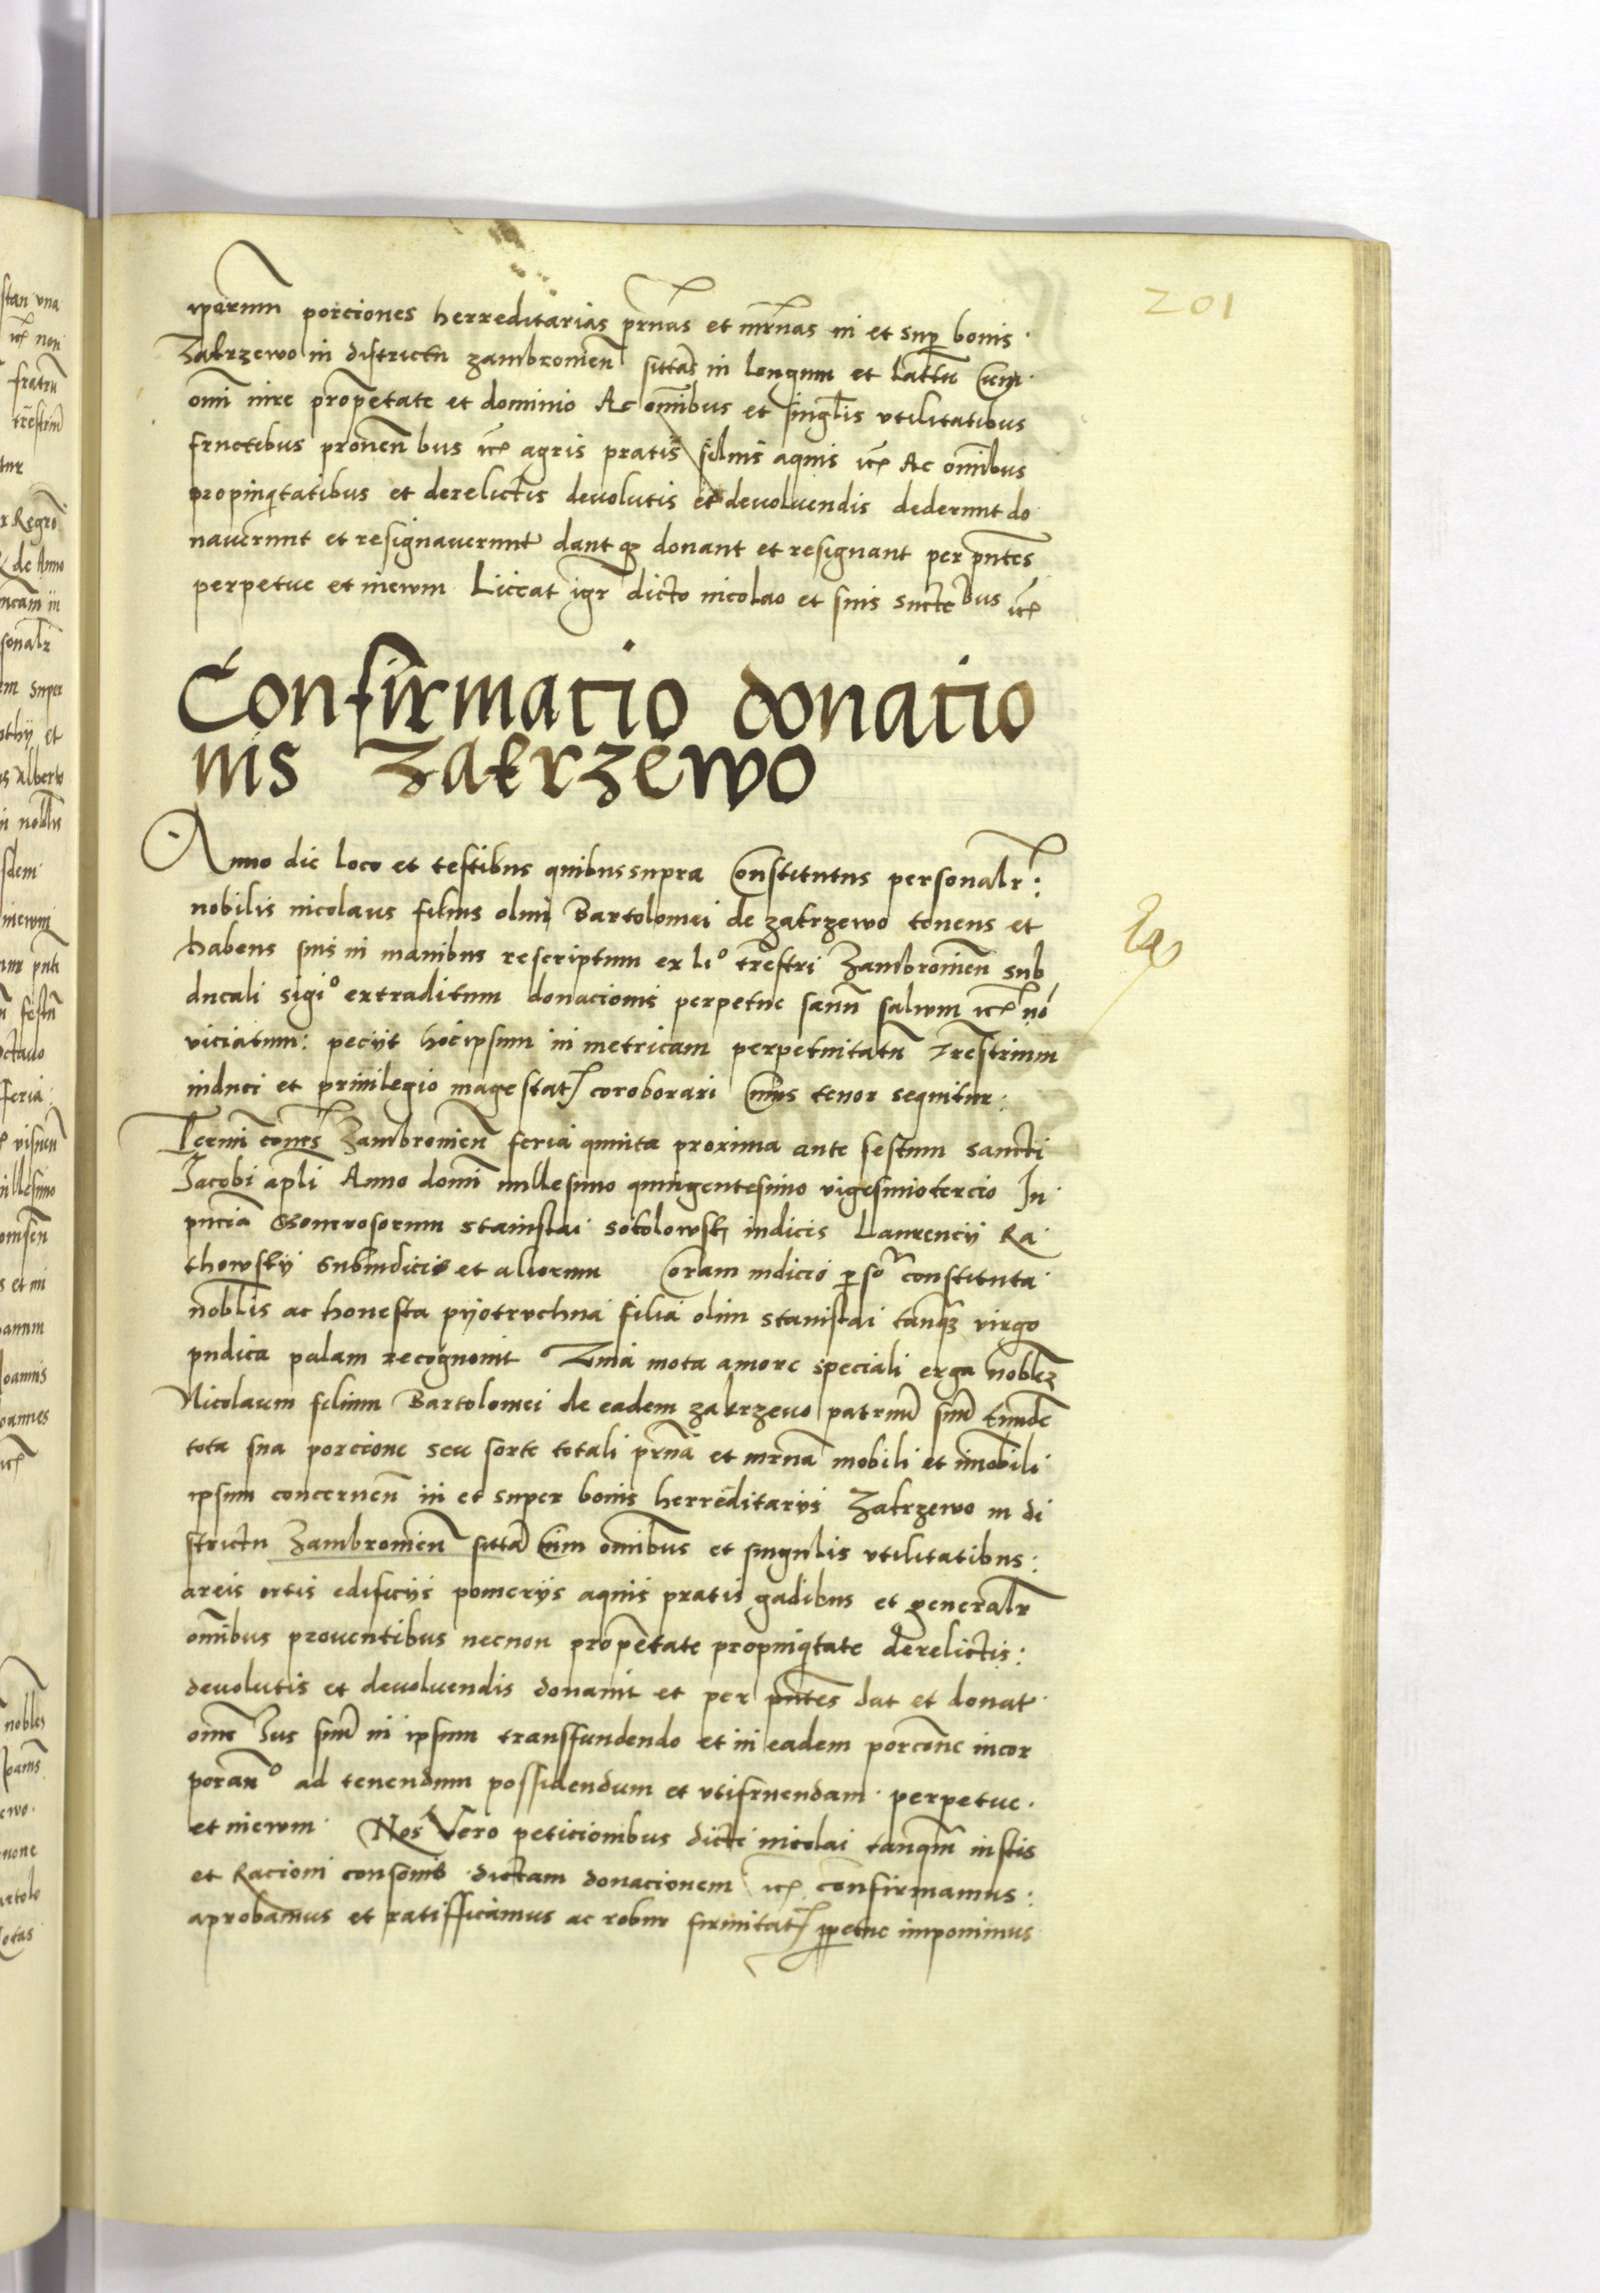 201
iperum porciones herreditarias prnas et mrnas in et sup bonis
Zakrzewo in districtu zambromen sittas in longum et lattu Cum
omi iure propetate et dominio Ac omibus et singlis vtilitatibus
fructibus prouen bus agris pratis siluis aquis Ac omibus
propinqtatibus et derelictis deuolutis et deuoluendis dederunt do
nauerunt et resignauerunt dant q donant et resignant per pntes
perpetue et in ewm Liceat igr dicto nicolao et suis succebus
Confirmacio donacio
nis Zakrzewo
Anno die loco et testibus quibus supra Constitutus personalr:
nobilis nicolaus filius olim Bartolomei de zakrzewo tenens et
habens suis in manibus rescriptum ex lio trestri Zambromien sub
ducali sigio extraditum donacionis perpetue sanu saluum no
viciatum: peciit hoc ipsum in metricam perpetuitatu Trestrium
induci et priuilegio magestat coroborari Cuius tenor sequitur:
Termi Zambromien feria quinta proxima ante festum sancti
Jacobi apli Anno domi millesimo quingentesimo vigesimotercio In
pncia Generosorum stanislai sokolowsk iudicis Laurencij Ra
thowskij Subiudicis et aliorum Coram iudicio perso constituta
noblis ac honesta pijotruchna filia olim stanislai tanq virgo
pudica palam recognouit Quia mota amore speciali erga noblez
Nicolaum filium Bartolomei de eadem zakrzewo patruu suu Eunde
tota sua porcione seu sorte totali prna et mrna mobili et imobili
ipsum concernen in et super bonis herreditariis Zakrzewo in di
strictu Zambromien sitta Cum omibus et singulis vtilitatibus:
areis ortis edificijs pomerijs aquis pratis gadibus et generalr
omibus prouentibus necnon propetate propinqtate derelictis:
deuolutis et deuoluendis donauit et per pntes dat et donat
ome Jus suu in ipsum transfundendo et in eadem porcone incor
porano ad tenendum possidendum et vtifruendam perpetue
et in ewm Nos Vero peticionibus dicti nicolai tanqm iustis
et Racioni consonis dictam donacionem confirmamus:
aprobamus et ratifficamus ac robur firmitat ppetue imponimus